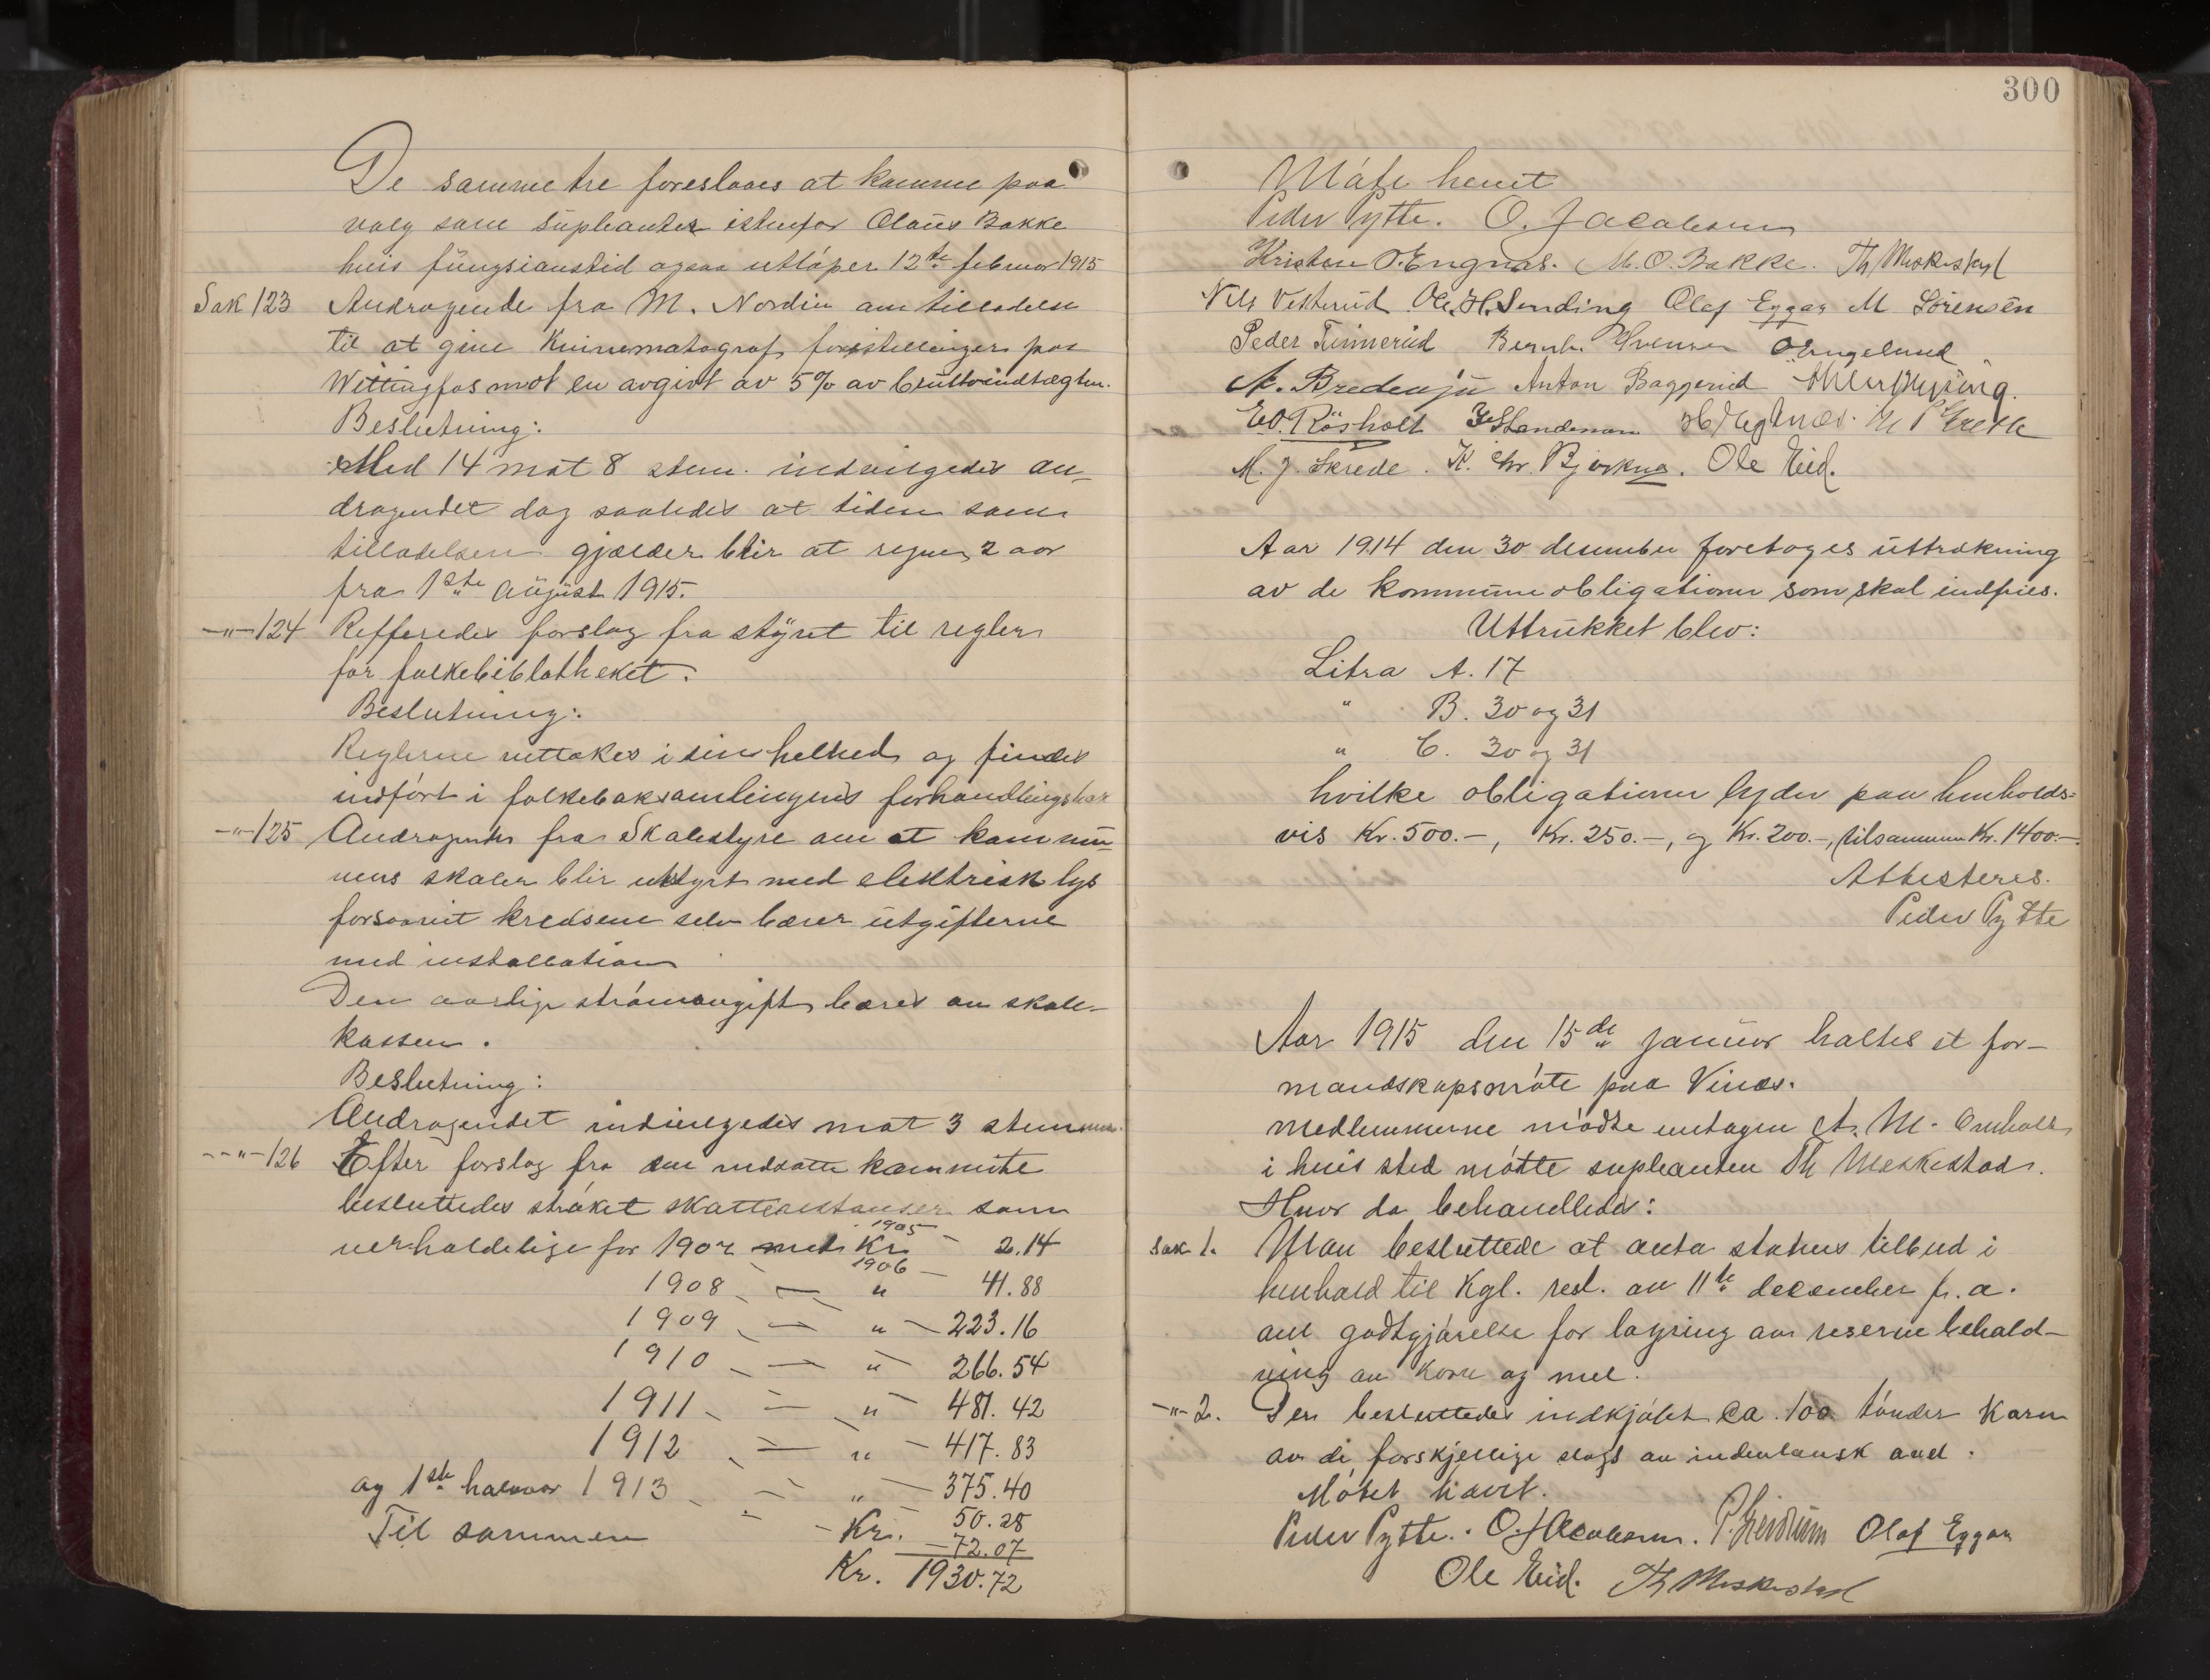 De samme tre foreslaaes at komme paa
valg som supleanter istenfor Olaus Bakke
hvis fungsjonstid ogsaa utløper 12te februar 1915
Sak 123 Andragende fra M. Nordin om tilladelse
til at give Kinematograf forestillinger paa
Wittingfos mot en avgivt av 5% av bruttoindtægten.
Beslutning:
Med 14 mot 8 stem. indvilgedes an-
dragendet dog saaledes at tiden som
tilladelsen gjælder blir at regne 2 aar
fra 1ste august 1915.
-"- 124 Refferedes forslag fra styret til regler
for folkebiblotheket.
Beslutning:
Reglerne vettakes i sin helhed og findes
indført i folkeboksamlingens forhandlingsbok
-"- 125 Andragende fra Skolestyre om at kommu-
nens skoler blir utstyrt med elektrisk lys
forsaavit kredsene selv bærer utgifterne
med installation
Den aarlige strømavgift bæres av skole-
kassen.
Beslutning:
Andragendet indvilgedes mot 3 stemmer.
-"- 126 Efter forslag fra den nedsatte kommite
besluttedes strøket skatterestanser som
uerholdelige for 1907 med Kr. - 2.14
1905
1906
1908 - — " 41.88
1909 - — " - 223.16
1910 - — " - 266.54
1911 - — " - 481.42
1912 - — " - 417.83
og 1ste halvaar 1913 - — " - 375.40
- - 50.28
Til sammen - Kr. - 72.07
Kr. 1930.72
300
Møte hevet
Peder Pytte. O. Jacobsen
Kristen O. Engnæs. M. O. Bakke. Th Moskestad
Nils Vetterud Ole H. Sending Olaf Eggar M Sørensen
Peder Tinnerud Bernh. Svensen O Engelund
A. Bredesju Anton Baggerud
E.O. Røsholt
M. J. Skrede. K. Chr. Bjørknes. Ole Eid.
Aar 1914 den 30 desember foretoges uttrækning
av de kommuneobligationer som skal indfries.
Uttrukket blev:
Litra A. 17
" B. 30 og 31
" C. 30 og 31
hvilke obligationer lyder paa henholds=
vis Kr. 500.-, Kr. 250.-, og Kr. 200.-, tilsammen Kr. 1400.-.
Attesteres.
Peder Pytte
Aar 1915 den 15de januar holtes et for-
mandskapsmøte paa Vinæs.
medlemmerne mødte untagen A. M. Omholt
i hvis sted møtte supleanten Th Moskestad.
Hvor da behandledes:
Sak 1. Man besluttede at anta statens tilbud i
henhold til Kgl. resl. av 11te december f. a.
om godtgjørelse for lagring av reserve behold-
ning av korn og mel.
-"- 2. Der besluttedes indkjøpt ca. 100 tønder Korn
av de forskjellige slags av indenlansk avl.
Møtet hævet.
Peder Pytte. O. Jacobsen. Olaf Eggar
Ole Eid. Th Moskestad